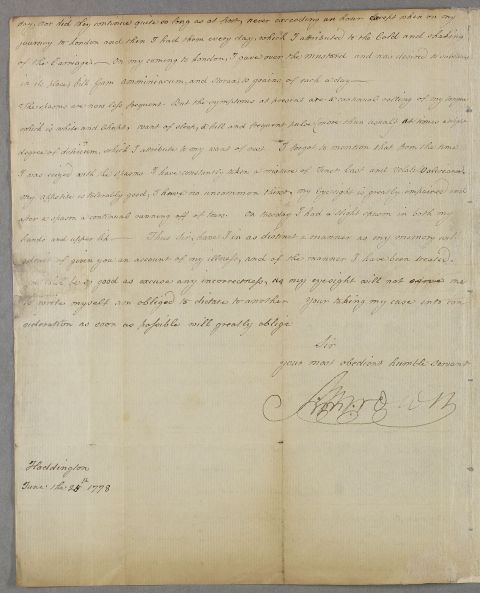 day, nor did they continue quite so long as at first, never exceeding an hour except when on my
journey to London and then I had them every day, which I attributed to the Cold and shaking
of the Carriage — On my coming to London, I gave over the Mustard and was desired to substitute
in its place, pills Gum Ammoniacum, and Storax 10 grains of each a day —
The spasms are now less frequent. But the symptoms at present are a continual of my tongue
which is white and want of sleep, a full and frequent pulse (more than usual) at times a slight
degree of delirium, which I attribute to my want of rest I forgot to mention that from the time
I was seized with the spasms I have constantly taken a mixture of Tinct. and Volatile
My appetite is tolerably good, I have no uncommon thirst, my Eyesight is greatly impaired and
after a spasm a continual running off of tears. On tuesday I had a slight spasm in both my
hands and upper lid — Thus Sir, have I in as distinct a manner as my memory will
admit of given you an account of my illness, and of the manner I have been treated.
You will be so good as excuse any incorrectness, as my eyesight will not serve me
to write myself am obliged to dictate to another your taking my case into con
sideration as soon as possible will greatly oblige
Sir
your most obedient humble Servant
Haddington
June the 24th 1778